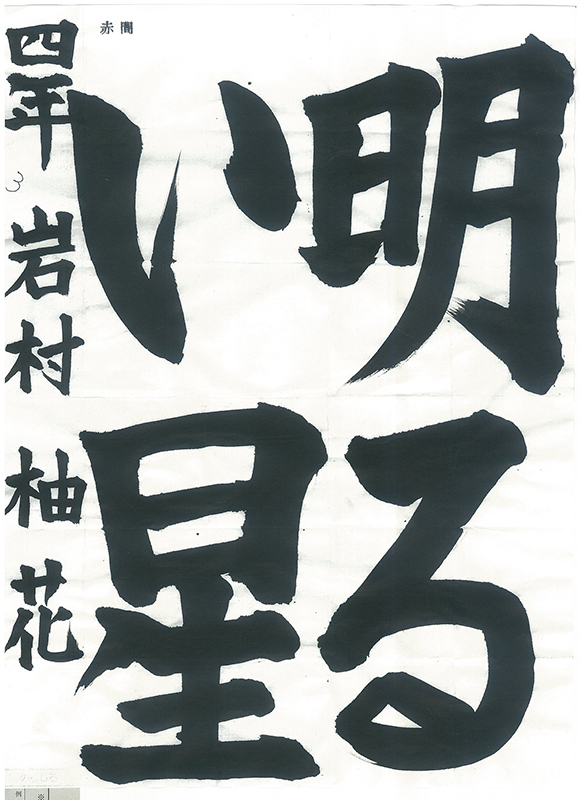 明る
い星
四年 岩村 柚花
赤間
3
例 ※